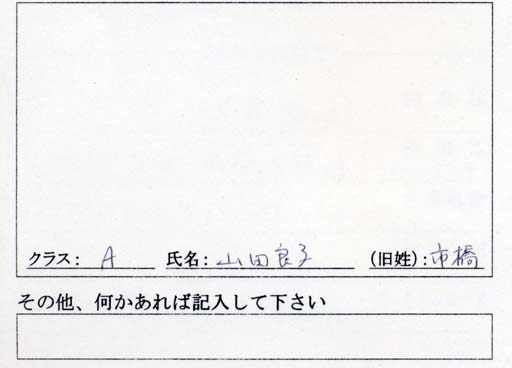 クラス： A 氏名： 山田良子 （旧姓）：市橋
その他、何かあれば記入して下さい